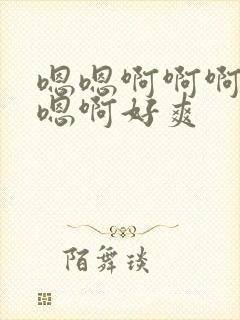 嗯嗯啊啊啊
嗯啊好爽
陌舞琰